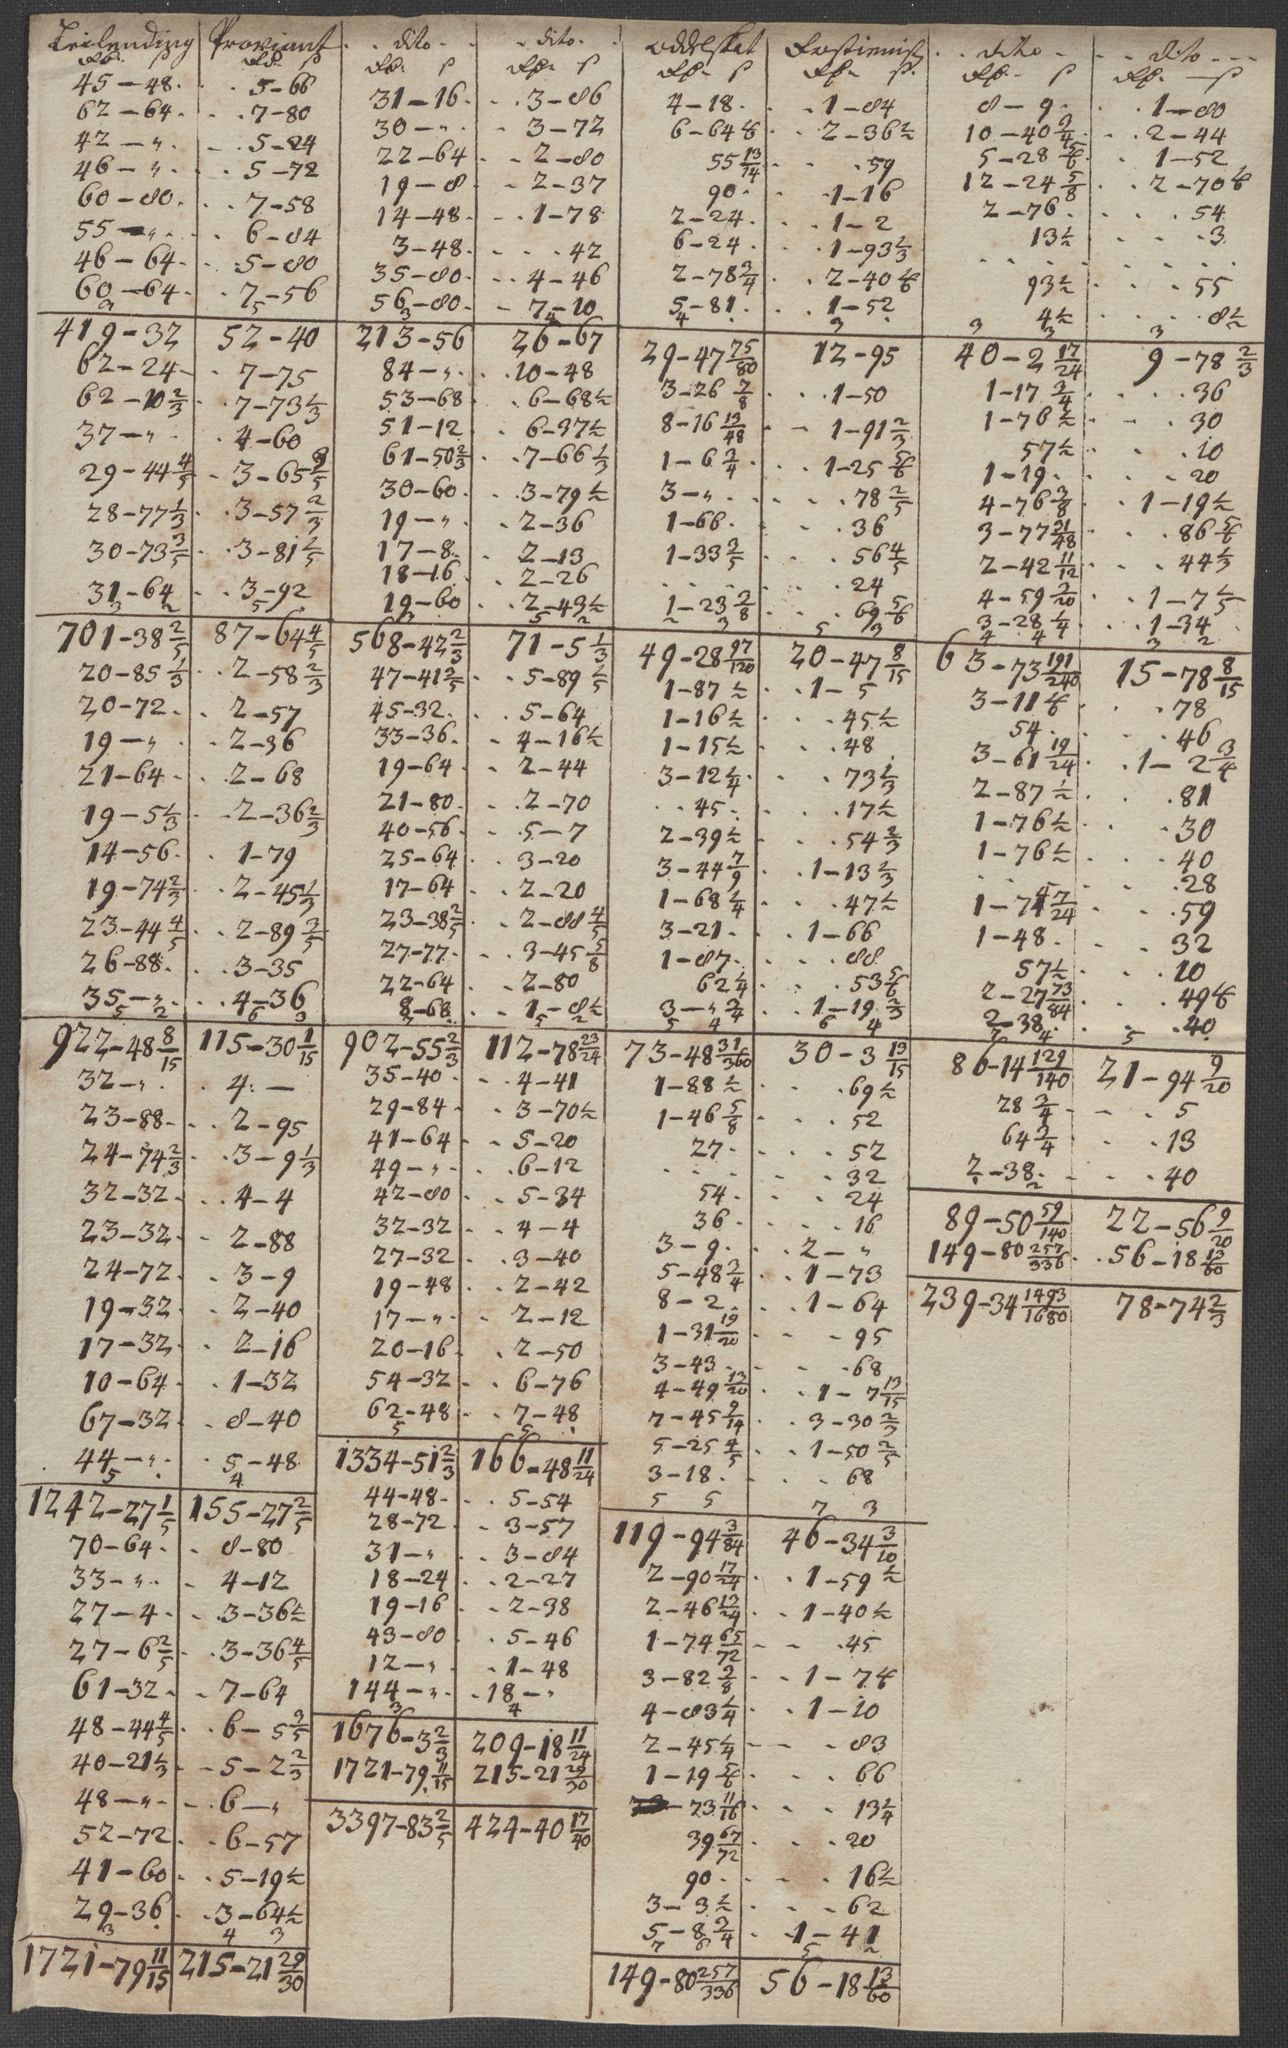 Leilending
Rd. ß
45-48.
62-64.
42-"
46-"
60-80.
55-"
46-64.
60-64.
419-32
62-24
62-10 2/3
37-"
29-44 4/5
28-77 1/3
30-73 3/5
31-64
701-38 2/5
20-85 1/3
20-72.
19-"
21-64
19-5 1/3
14-56.
19-74 2/3
23-44 4/5
26-88.
35-"
922-48 8/15
32-"
23-88.
24-74 2/3
32-32
23-32
24-72
19-32
17-32
10-64
67-32
44-"
1242-27 1/5
70-64
33-"
27-4
27-6 2/5
61-32
48-44 4/5
40-21 1/3
48-"
52-72
41-60
29-36
1721-79 11/15
Proviant
Rd. ß
5-66
7-80
5-24
5-72
7-58
6-84
5-80
7-56
52-40
7-75
7-73 1/3
4-60
3-57 2/3
3-92
87-64 4/5
2-58 2/3
2-57
2-36
2-68
2-36 2/3
1-79
2-45 1/3
2-89 3/5
3-35
4-36
115-30 1/15
4-
2-95
3-9 1/3
4-4
2-88
3-9
2-40
2-16
1-32
8-40
5-48
155-27 2/5
8-80
4-12
3-36 1/2
3-36 4/5
7-64
6-5 3/5
5-2 2/3
6-"
6-57
5-19 1/2
3-64 1/2
215-21 29/30
dito
Rd. ß
31-16.
30-"
22-64
19-8
14-48
3-48
35-80
56-80
213-56
84-"
53-68
51-12
61-50 2/3
30-60
19-"
17-8
18-16
19-60
568-42 2/3
47-41 2/5
45-32.
33-36.
19-64
21-80
40-56
25-64
17-64
23-38 2/5
27-77
22-64
8-68
902-55 2/3
35-40
29-84
41-64
49-"
42-80
32-32
27-32
19-48
17-"
20-16
54-32
62-48
1334-51 2/3
44-48
28-72
31-"
18-24
19-16
43-80
12-"
144-"
1676-3 2/3
1721-79 11/15
3397-83 2/5
dito
Rd. ß
3-86
3-72
2-80
2-37
1-78
42
4-46
7-10
26-67
10-48
6-68 1/2
6-37 1/2
7-66 1/3
3-79 1/2
2-36
2-13
2-26
2-43 1/2
71-5 1/3
5-89 1/5
5-64
4-16 1/2
2-44
2-70
5-7
3-20
2-20
2-88 4/5
3-45 5/8
2-80
1-8 1/2
112-78 23/24
4-41
3-70 1/2
5-20
6-12
5-34
4-4
3-40
2-42
2-12
2-50
6-76
7-48
166-48 11/24
5-54
3-57
3-84
2-27
2-38
5-46
1-48
18-"
209-18 11/24
215-21 29/30
424-40 17/40
oddelskat
Rd. ß
4-18.
55 13/14
90
2-24
6-24
2-78 3/4
5-81
29-47 75/80
3-26 7/8
8-16 13/48
1-6 3/4
3-"
1-66
1-33 3/5
1-23 3/8
49-28 97/120
1-87 1/2
1-16 1/2
1-15 1/2
3-12 1/4
45
2-39 1/2
3-44 7/9
1-68 1/4
3-21
1-87
62 1/4
3-" 3/4
73-48 31/360
1-88 1/2
1-46 5/8
27
54
36
3-9
5-48 3/4
8-2
1-31 19/20
3-43
4-49 13/20
7-45 9/14
5-25 4/5
3-18
119-94 3/84
2-90 17/24
2-46 12/24
1-74 65/72
3-82 3/8
4-83 1/4
2-45 1/4
1-19 5/6
23 11/16
39 67/72
90
3-3 1/2
5-8 3/4
149-80 257/336
Rd. ß
1-84
59
1-16
1-2
1-93 1/3
1-52
12-95
1-50
1-91 2/3
1-25 5/6
78 2/5
36
56 4/5
24
69 5/6
20-47 8/15
1-5
45 1/2
48
73 1/3
17 1/2
54 2/3
1-13 1/3
47 1/2
1-66
88
53 5/6
1-19 2/3
30-3 13/15
69 1/2
52
52
32
24
16
2-"
1-73
1-64
95
68
1-7 13/15
3-30 2/3
1-50 2/5
68
46-34 3/10
1-59 1/2
1-40 1/2
45
1-10
83
66
13 1/4
20
16 1/2
62
1-41
56-18 13/60
dito
Rd. ß
8-9
10-40 3/4
5-28 5/6
12-24 5/8
2-76
13 1/2
93 1/2
4 1/2
40-2 17/24
1-17 3/4
1-76 1/2
57 1/2
1-19
4-76 3/8
3-77 21/48
2-42 11/12
4-59 3/20
3-28 1/4
63-73 191/240
54
3-61 19/24
2-87 1/2
1-76 1/2
1-76 1/2
1-74 7/24
1-48
57 1/2
2-27 73/84
2-38
86-14 129/140
28 3/4
64 3/4
2-38
89-50 59/140
149-80 257/336
239-34 1493/1680
dito
Rd. ß
1-80
2-44
1-52
54
3
55
8 1/2
9-78 2/3
36
30
10
20
1-19 1/2
86 5/6
44 1/3
1-7 1/5
1-34
15-78 8/15
78
46
1-2 3/4
81
30
40
28
59
32
10
40
21-94 9/20
5
13
40
22-56 9/20
56-18 13/60
78-74 2/3